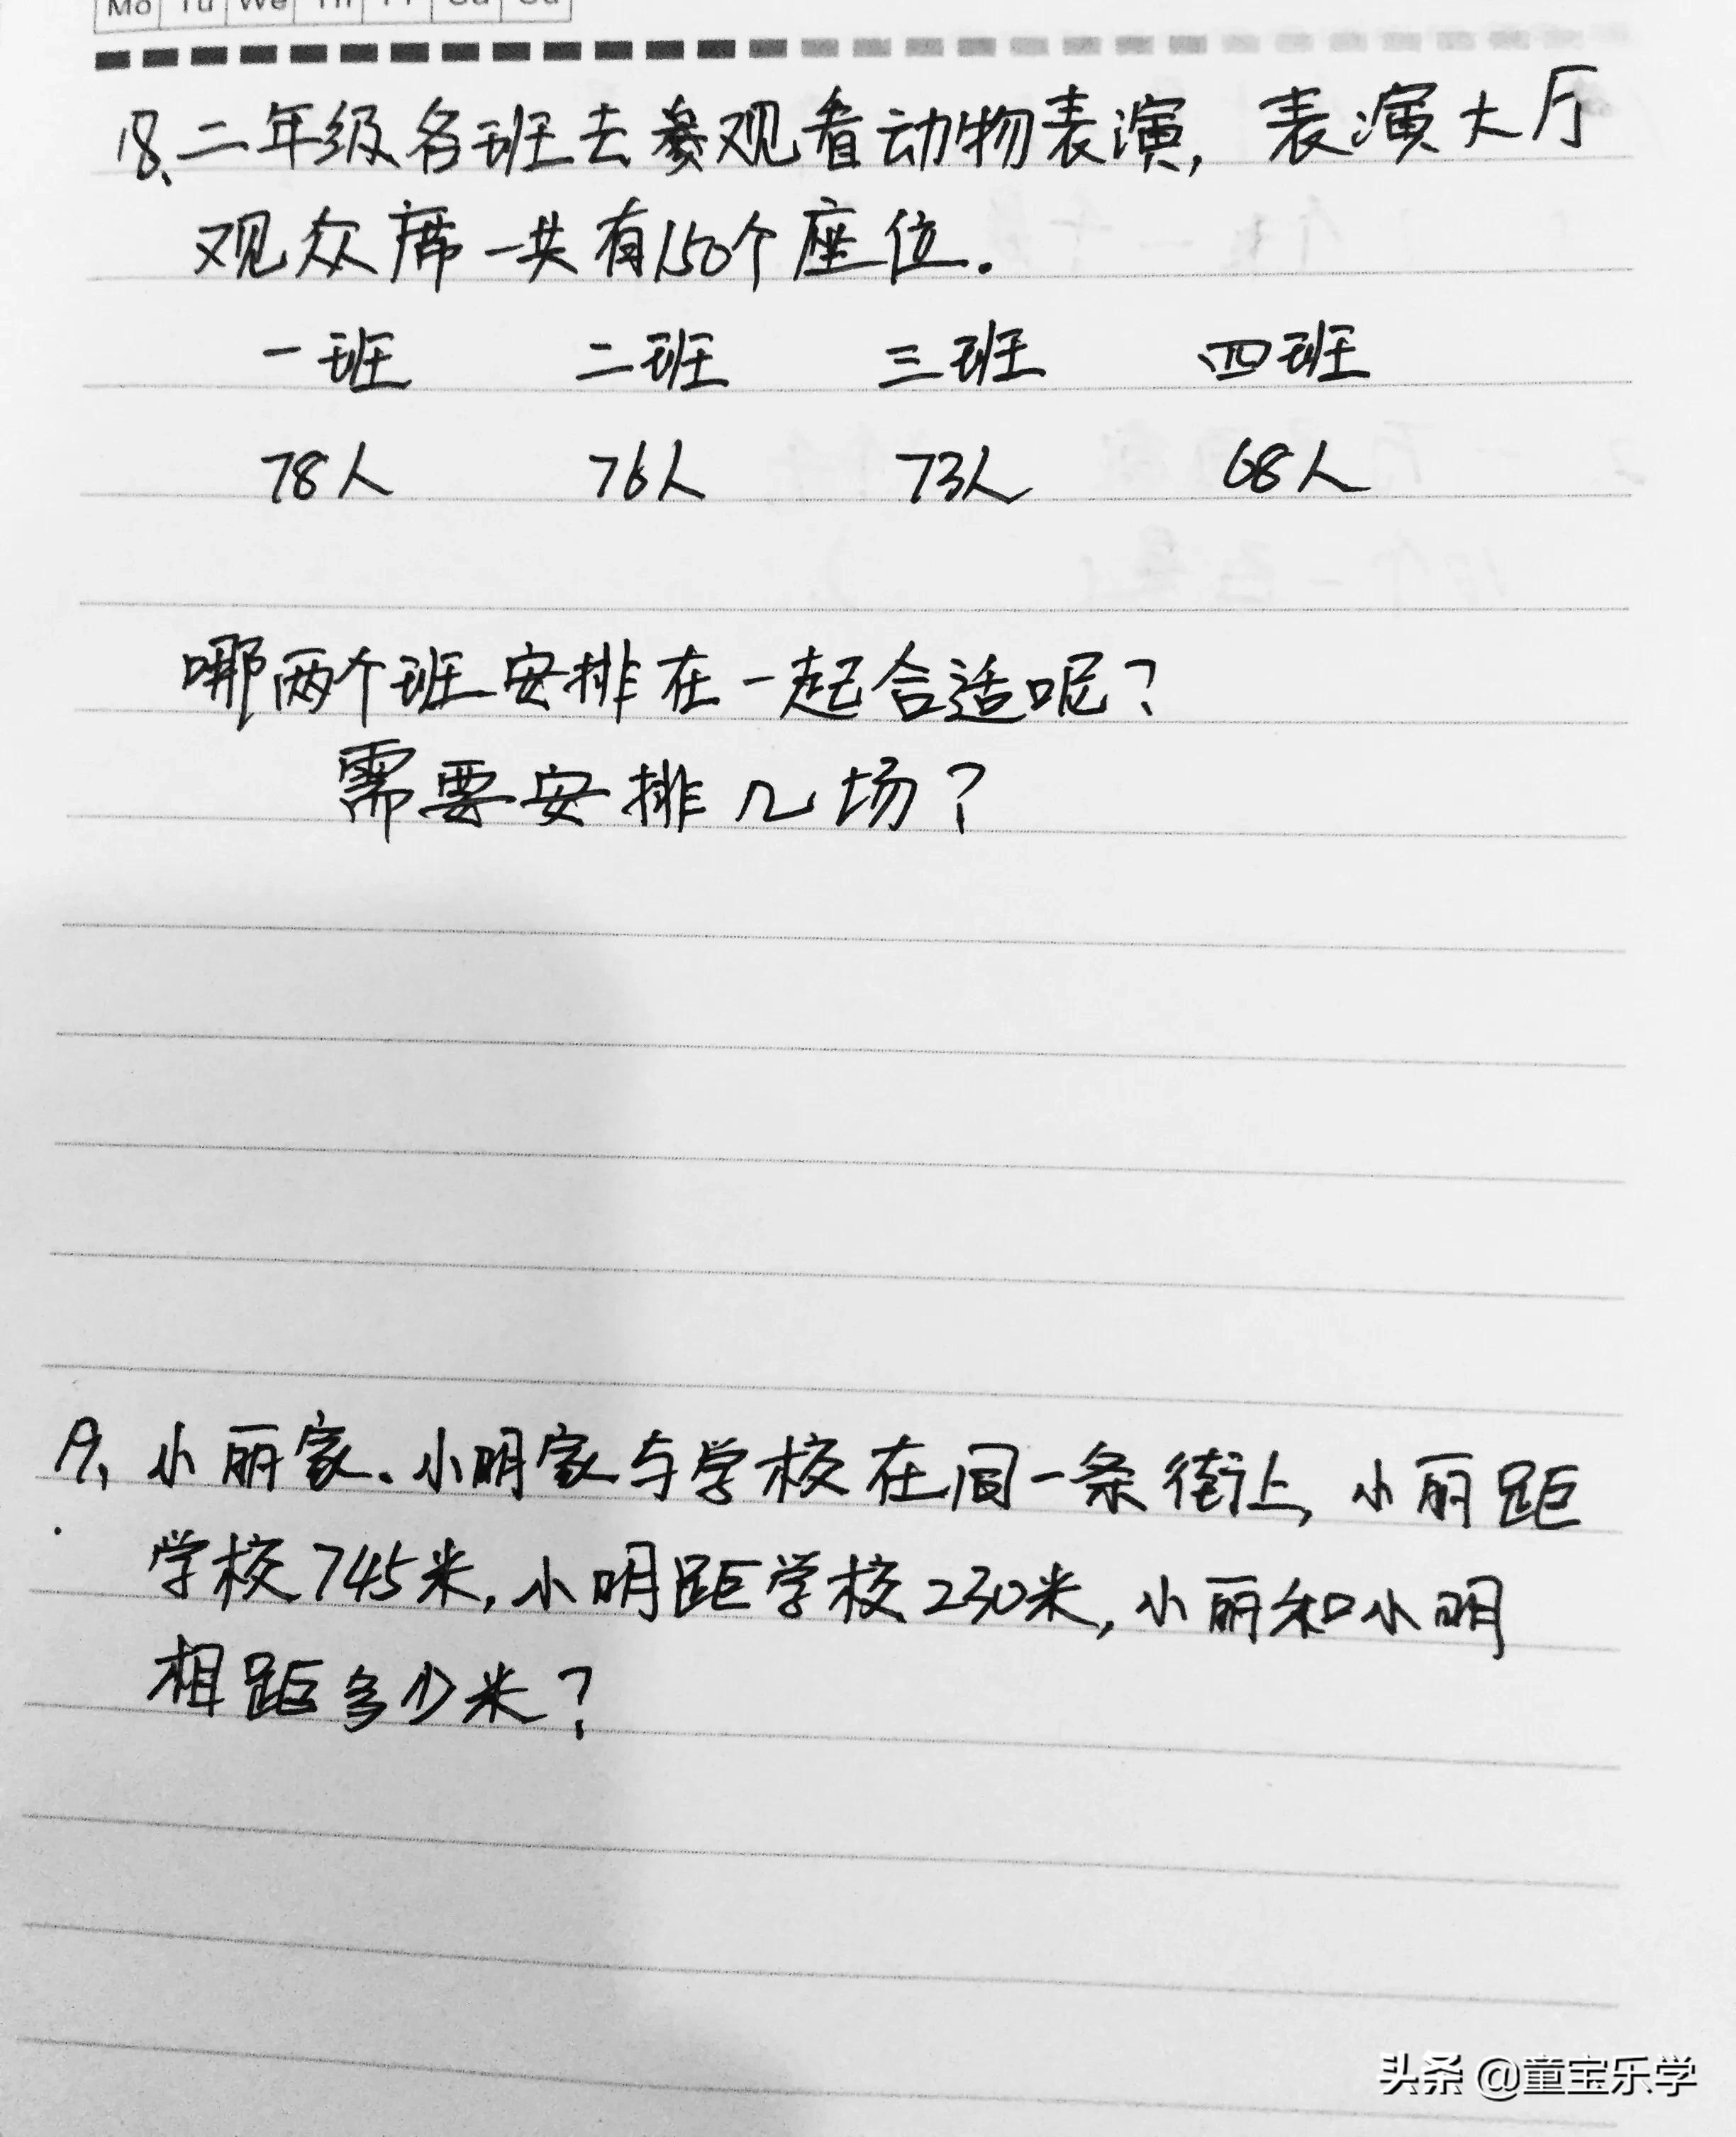 Mo Tu We Th Fr Sa Su
18、二年级各班去参观看动物表演，表演大厅
观众席一共有150个座位．
一班 二班 三班 四班
78人 76人 73人 68人
哪两个班安排在一起合适呢？
需要安排几场？
19、小丽家、小明家与学校在同一条街上，小丽距
学校745米，小明距学校230米，小丽和小明
相距多少米？
头条 @童宝乐学